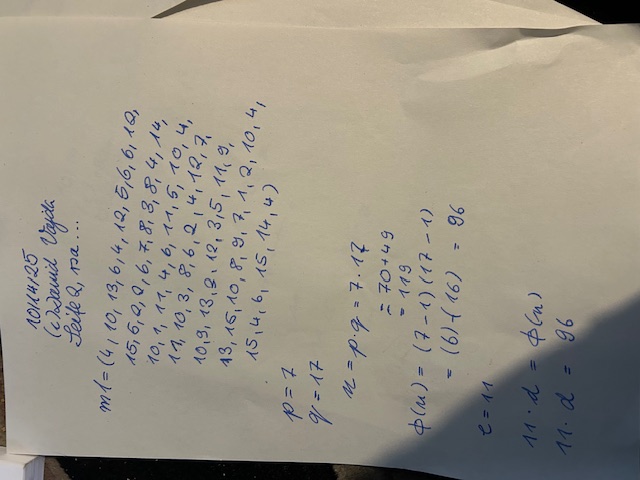 10/14/25
(c) David Vajda
Seite 2, rsa...
m1=(4, 10, 13, 6, 4, 12, 5, 6, 6, 12,
15, 6, 2, 2, 6, 7, 8, 3, 8, 4, 14,
10, 1, 11, 4, 6, 11, 5, 10, 4,
11, 10, 3, 8, 6, 2, 4, 12, 7,
10, 9, 13, 2, 12, 3, 5, 11, 9,
13, 15, 10, 8, 9, 7, 1, 2, 10, 4,
15, 4, 6, 15, 14, 4)
p = 7
q = 17
n = p·q = 7·17
= 70+49
= 119
ϕ(n) = (7-1)(17-1)
= (6)·(16) = 96
e = 11
11·d = ϕ(n)
11·d = 96